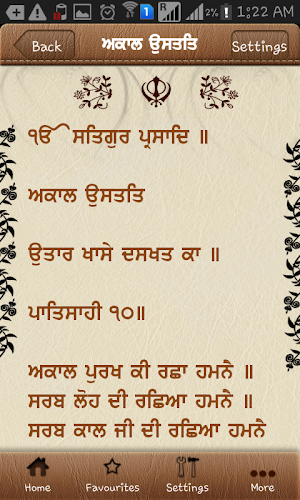 1:22 AM
Back
ਅਕਾਲ ਉਸਤਤਿ
Settings
ੴ ਸਤਿਗੁਰ ਪ੍ਰਸਾਦਿ ॥
ਅਕਾਲ ਉਸਤਤਿ
ਉਤਾਰ ਖਾਸੇ ਦਸਖਤ ਕਾ ॥
ਪਾਤਿਸਾਹੀ ੧੦॥
ਅਕਾਲ ਪੁਰਖ ਕੀ ਰਛਾ ਹਮਨੈ ॥
ਸਰਬ ਲੋਹ ਦੀ ਰਛਿਆ ਹਮਨੈ ॥
ਸਰਬ ਕਾਲ ਜੀ ਦੀ ਰਛਿਆ ਹਮਨੈ
Home Favourites Settings More